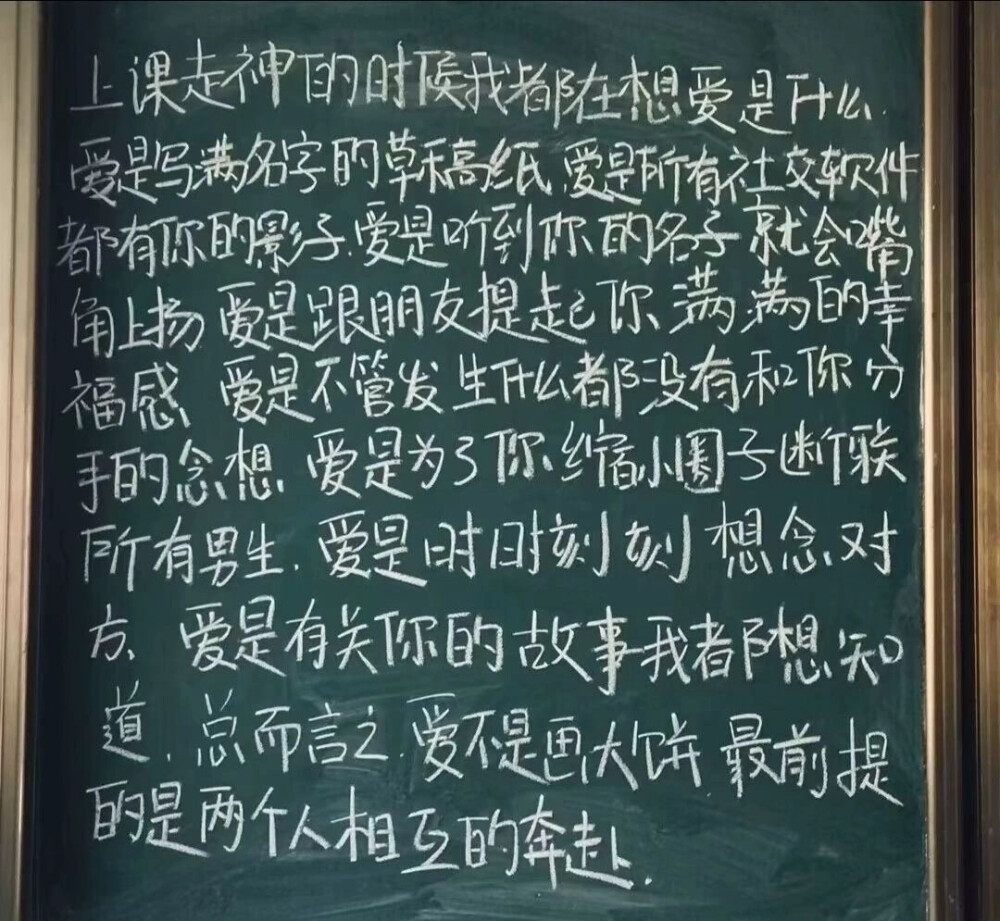 上课走神的时候我都在想爱是什么.
爱是写满名字的草稿纸,爱是所有社交软件
都有你的影子.爱是听到你的名子就会嘴
角上扬 爱是跟朋友提起你 满满的幸
福感 爱是不管发生什么都没有和你分
手的念想 爱是为了你缩小圈子断联
所有男生.爱是时时刻刻 想念对
方、爱是有关你的故事我都想知
道.总而言之.爱不是画大饼.最前提
的是两个人相互的奔赴.